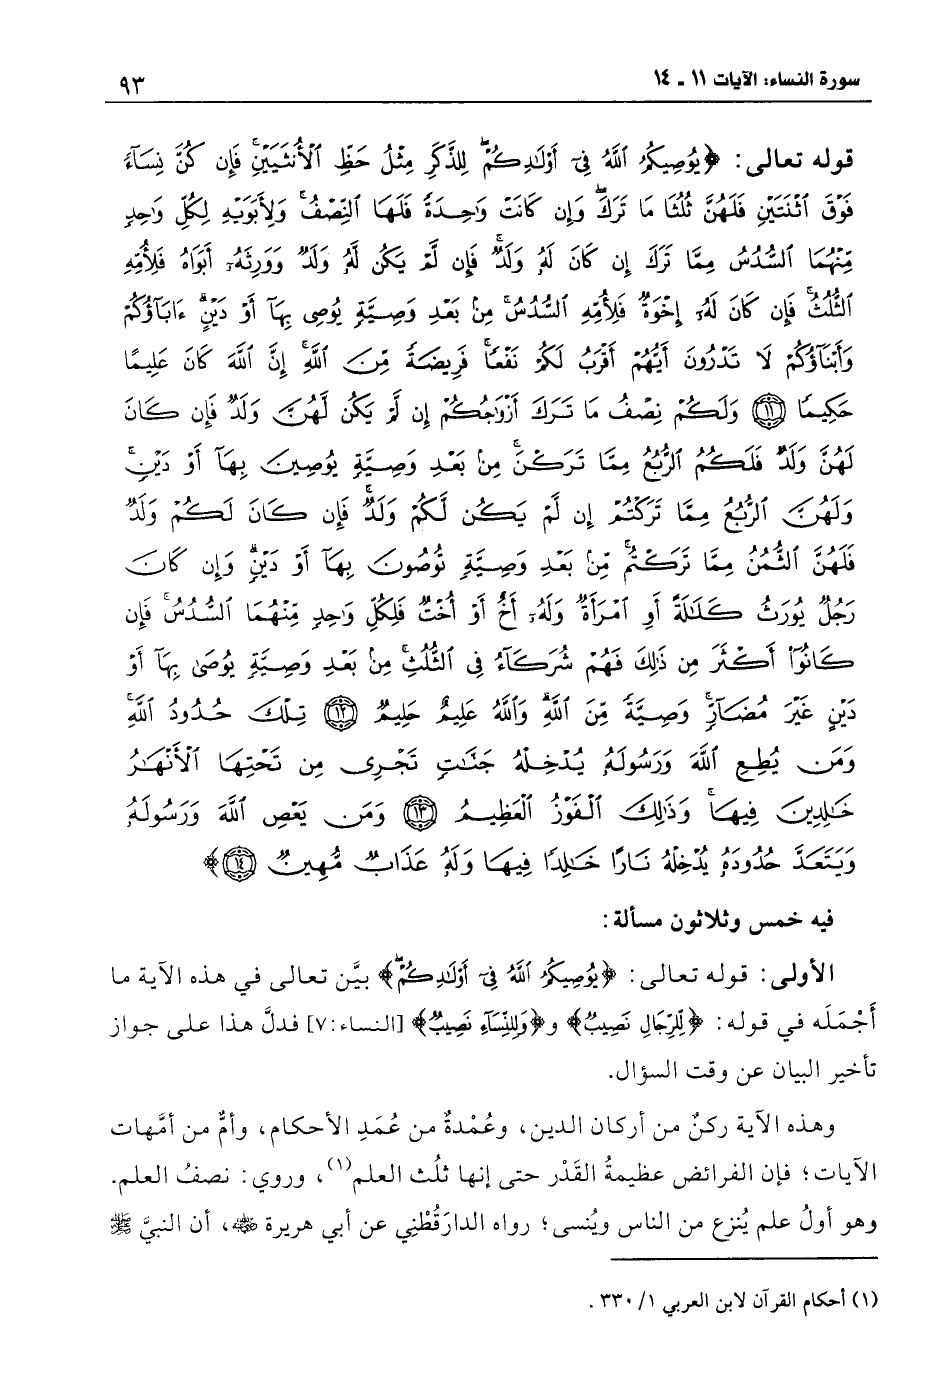 سورة النساء: الآيات ١١ ـ ١٤
٩٣
قوله تعالى: ﴿يُوصِيكُمُ ٱللَّهُ فِىٓ أَوْلَٰدِكُمْ ۖ لِلذَّكَرِ مِثْلُ حَظِّ ٱلْأُنثَيَيْنِ ۚ فَإِن كُنَّ نِسَآءً
فَوْقَ ٱثْنَتَيْنِ فَلَهُنَّ ثُلُثَا مَا تَرَكَ ۖ وَإِن كَانَتْ وَٰحِدَةً فَلَهَا ٱلنِّصْفُ ۚ وَلِأَبَوَيْهِ لِكُلِّ وَٰحِدٍ
مِّنْهُمَا ٱلسُّدُسُ مِمَّا تَرَكَ إِن كَانَ لَهُۥ وَلَدٌ ۚ فَإِن لَّمْ يَكُن لَّهُۥ وَلَدٌ وَوَرِثَهُۥٓ أَبَوَاهُ فَلِأُمِّهِ
ٱلثُّلُثُ ۚ فَإِن كَانَ لَهُۥٓ إِخْوَةٌ فَلِأُمِّهِ ٱلسُّدُسُ ۚ مِنۢ بَعْدِ وَصِيَّةٍ يُوصِى بِهَآ أَوْ دَيْنٍ ۗ ءَابَآؤُكُمْ
وَأَبْنَآؤُكُمْ لَا تَدْرُونَ أَيُّهُمْ أَقْرَبُ لَكُمْ نَفْعًا ۚ فَرِيضَةً مِّنَ ٱللَّهِ ۗ إِنَّ ٱللَّهَ كَانَ عَلِيمًا
حَكِيمًا ١١ وَلَكُمْ نِصْفُ مَا تَرَكَ أَزْوَٰجُكُمْ إِن لَّمْ يَكُن لَّهُنَّ وَلَدٌ ۚ فَإِن كَانَ
لَهُنَّ وَلَدٌ فَلَكُمُ ٱلرُّبُعُ مِمَّا تَرَكْنَ ۚ مِنۢ بَعْدِ وَصِيَّةٍ يُوصِينَ بِهَآ أَوْ دَيْنٍ ۚ
وَلَهُنَّ ٱلرُّبُعُ مِمَّا تَرَكْتُمْ إِن لَّمْ يَكُن لَّكُمْ وَلَدٌ ۚ فَإِن كَانَ لَكُمْ وَلَدٌ
فَلَهُنَّ ٱلثُّمُنُ مِمَّا تَرَكْتُم ۚ مِّنۢ بَعْدِ وَصِيَّةٍ تُوصُونَ بِهَآ أَوْ دَيْنٍ ۗ وَإِن كَانَ
رَجُلٌ يُورَثُ كَلَٰلَةً أَوِ ٱمْرَأَةٌ وَلَهُۥٓ أَخٌ أَوْ أُخْتٌ فَلِكُلِّ وَٰحِدٍ مِّنْهُمَا ٱلسُّدُسُ ۚ فَإِن
كَانُوٓا۟ أَكْثَرَ مِن ذَٰلِكَ فَهُمْ شُرَكَآءُ فِى ٱلثُّلُثِ ۚ مِنۢ بَعْدِ وَصِيَّةٍ يُوصَىٰ بِهَآ أَوْ
دَيْنٍ غَيْرَ مُضَآرٍّ ۚ وَصِيَّةً مِّنَ ٱللَّهِ ۗ وَٱللَّهُ عَلِيمٌ حَلِيمٌ ١٢ تِلْكَ حُدُودُ ٱللَّهِ ۚ
وَمَن يُطِعِ ٱللَّهَ وَرَسُولَهُۥ يُدْخِلْهُ جَنَّٰتٍ تَجْرِى مِن تَحْتِهَا ٱلْأَنْهَٰرُ
خَٰلِدِينَ فِيهَا ۚ وَذَٰلِكَ ٱلْفَوْزُ ٱلْعَظِيمُ ١٣ وَمَن يَعْصِ ٱللَّهَ وَرَسُولَهُۥ
وَيَتَعَدَّ حُدُودَهُۥ يُدْخِلْهُ نَارًا خَٰلِدًا فِيهَا وَلَهُۥ عَذَابٌ مُّهِينٌ ١٤﴾
فيه خمس وثلاثون مسألة:
الأولى: قوله تعالى: ﴿يُوصِيكُمُ ٱللَّهُ فِىٓ أَوْلَٰدِكُمْ ۖ﴾ بيَّن تعالى في هذه الآية ما
أَجْمَلَه في قوله: ﴿لِّلرِّجَالِ نَصِيبٌ﴾ و﴿وَلِلنِّسَآءِ نَصِيبٌ﴾ [النساء:٧] فدلَّ هذا على جواز
تأخير البيان عن وقت السؤال.
وهذه الآية ركنٌ من أركان الدين، وعُمْدةٌ من عُمَدِ الأحكام، وأمٌّ من أمَّهات
الآيات؛ فإن الفرائض عظيمةُ القَدْر حتى إنها ثلُث العلم(١)، وروي: نصفُ العلم.
وهو أولُ علم يُنزع من الناس ويُنسى؛ رواه الدارَقُطْنِي عن أبي هريرة ﵁، أن النبيَّ ﷺ
(١) أحكام القرآن لابن العربي ١/ ٣٣٠ .